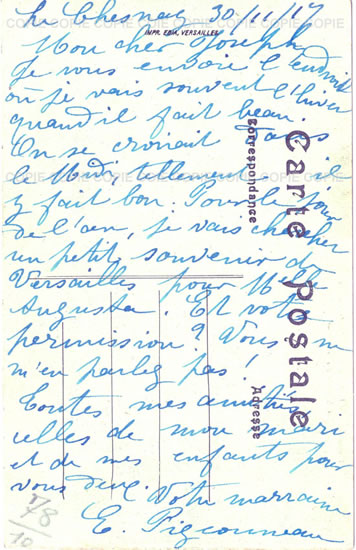 Le Chesnay 30/11/17
IMPR. EDIA, VERSAILLES
Mon cher Joseph
Je vous envoie l'endroit
où je vais souvent l'hiver
quand il fait beau.
On se croirait dans
le Midi, tellement il
y fait bon. Pour le jour
de l'an, je vais chercher
un petit souvenir de
Versailles pour Melle
Augusta. Et votre
permission? Vous ne
m'en parlez pas!
Toutes mes amitiés
celles de mon mari
et de mes enfants pour
vous deux. Votre marraine
E. Pigeonneau
Carte Postale
Correspondance
Adresse
78/10
COPIE COPIE COPIE COPIE COPIE COPIE